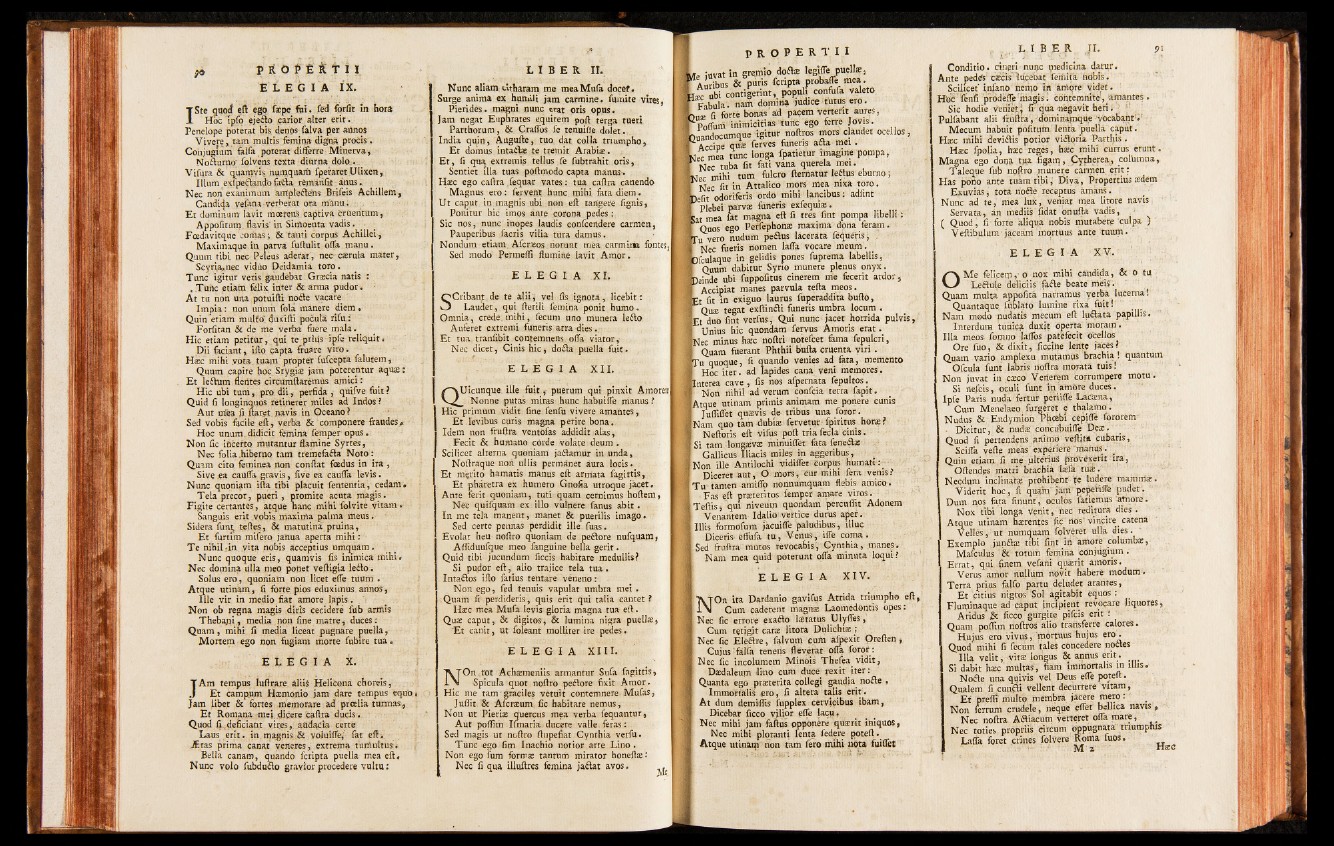 90 PROPERTII
ELEGIA IX.
ISte quod est ego sæpe fui. sed forsit in hora
Hoc ipso ejecto carior alter erit.
Penelope poterat bis denos salva per annos
Vivere, tam multis femina digna procis.
Conjugium falsa poterat differre Minerva,
Nocturno solvens texta diurna dolo.
Visura & quamvis numquam speraret Ulixen,
Illum exspectando facta remansit anus.
Nec non exanimum amplectens Briseis Achillem,
Candida vesana verberat ora manu.
Et dominum lavit mœrens captiva cruentum,
Appositum flavis in Simoenta vadis.
Fœdavitque comas; & tanti corpus Achillei,
Maximaque in parva sustulit ossa manu.
Quum tibi nec Peleus aderat, nec cærula mater,
Scyria nec viduo Deidamia toro.
Tunc igitur veris gaudebat Græcia natis:
Tunc etiam felix inter & arma pudor.
At tu non una potuisti nocte vacare
Impia: non unum sola manere diem.
Quin etiam multo duxisti pocula risu:
Forsitan & de me verba fuere mala.
Hic etiam petitur, qui te prius ipse reliquit.
Dii faciant, isto capta fruare viro.
Hæc mihi vota tuam propter suscepta salutem,
Quum capite hoc Stygiæ jam poterentur aquæ:
Et lectum flentes circumstaremus amici:
Hic ubi tum, pro dii, perfida, quisve fuit?
Quid si longinquos retinerer miles ad Indos?
Aut mea si staret navis in Oceano?
Sed vobis facile est, verba & componere fraudes.
Hoc unum didicit femina semper opus.
Non sic incerto mutantur flamine Syrtes,
Nec folia hiberno tam tremefacta Noto:
Quam cito feminea non constat fœdus in ira,
Sive ea caussa gravis, sive ea caussa levis.
Nunc quoniam ista tibi placuit sententia, cedam.
Tela precor, pueri, promite acuta magis.
Figite certantes, atque hanc mihi solvite vitam.
Sanguis erit vobis maxima palma meus.
Sidera sunt testes, & matutina pruina,
Et furtim misero janua aperta mihi:
Te nihil in vita nobis acceptius umquam.
Nunc quoque eris, quamvis sis inimica mihi.
Nec domina ulla meo ponet vestigia lecto.
Solus ero, quoniam non licet esse tuum.
Atque utinam, si forte pios eduximus annos,
Ille vir in medio fiat amore lapis.
Non ob regna magis diris cecidere sub armis
Thebani, media non sine matre, duces:
Quam, mihi si media liceat pugnare puella,
Mortem ego non fugiam morte subire tua.
ELEGIA X.
JAm tempus lustrare aliis Helicona choreis,
Et campum Hæmonio jam dare tempus equo.
Jam libet & fortes memorare ad prœlia turmas,
Et Romana mei dicere castra ducis.
Quod si deficiant vires, audacia certe
Laus erit. in magnis & voluisse, sat est.
Ætas prima canat veneres, extrema tumultus.
Bella canam, quando scripta puella mea est.
Nunc volo subducto gravior procedere vultu:
LIBER II.
Nunc aliam citharam me mea Musa docet.
Surge anima ex humili jam carmine. sumite vires,
Pierides. magni nunc erat oris opus.
Jam negat Euphrates equitem post terga tueri
Parthorum, & Crassos se tenuisse dolet.
India quin, Auguste, tuo dat colla triumpho,
Et domus intactæ te tremit Arabiæ.
Et, si qua extremis tellus se subtrahit oris,
Sentiet illa tuas postmodo capta manus.
Hæc ego castra sequar vates: tua castra canendo
Magnus ero: servent hunc mihi fata diem.
Ut caput in magnis ubi non est tangere signis,
Ponitur hic imos ante corona pedes:
Sic nos, nunc inopes laudis conscendere carmen,
Pauperibus sacris vilia tura damus.
Nondum etiam Ascræos norunt mea carmina fontes,
Sed modo Permessi flumine lavit Amor.
ELEGIA XI.
SCribant de te alii, vel sis ignota, licebit:
Laudet, qui sterili semina ponit humo.
Omnia, crede mihi, secum uno munera lecto
Auferet extremi funeris atra dies.
Et tua transibit contemnens ossa viator,
Nec dicet, Cinis hic, docta puella fuit.
ELEGIA XII.
QUicunque ille fuit, puerum qui pinxit Amorem
Nonne putas miras hunc habuisse manus?
Hic primum vidit sine sensu vivere amantes,
Et levibus curis magna perire bona.
Idem non frustra ventosas addidit alas,
Fecit & humano corde volare deum.
Scilicet alterna quoniam jactamur in unda,
Nostraque non ullis permanet aura locis.
Et merito hamatis manus est armata sagittis,
Et pharetra ex humero Gnosia utroque jacet.
Ante ferit quoniam, tuti quam cernimus hostem,
Nec quisquam ex illo vulnere sanus abit.
In me tela manent, manet & puerilis imago.
Sed certe pennas perdidit ille suas.
Evolat heu nostro quoniam de pectore nusquam,
Assiduusque meo sanguine bella gerit.
Quid tibi jucundum siccis habitare medullis?
Si pudor est, alio trajice tela tua.
Intactos isto satius tentare veneno:
Non ego, sed tenuis vapulat umbra mei.
Quam si perdideris, quis erit qui talia cantet?
Hæc mea Musa levis gloria magna tua est.
Quæ caput, & digitos, & lumina nigra puellæ,
Et canit, ut soleant molliter ire pedes.
ELEGIA XIII.
NOn tot Achæmeniis armantur Susa sagittis,
Spicula quot nostro pectore fixit Amor.
Hic me tam graciles vetuit contemnere Musas,
Jussit & Ascræum sic habitare nemus,
Non ut Pieriæ quercus mea verba sequantur,
Aut possim Ismaria ducere valle feras:
Sed magis ut nostro stupefiat Cynthia versu.
Tunc ego sim Inachio notior arte Lino.
Non ego sum formæ tantum mirator honestæ:
Nec si qua illustres femina jactat avos.
Me
PROPERTII
Me juvat in gremio doctæ legisse puellæ,
Auribus & puris scripta probasse mea.
Hæc ubi contigerint, populi confusa valeto
Fabula. nam domina judice tutus ero.
Quæ si forte bonas ad pacem verterit aures,
Possum inimicitias tunc ego ferre Jovis.
Quandocumque igitur nostros mors claudet ocellos,
Accipe quæ serves funeris acta mei.
Nec mea tunc longa spatietur imagine pompa,
Nec tuba sit fati vana querela mei.
Nec mihi tum fulcro sternatur lectus eburno;
Nec sit in Attalico mors mea nixa toro.
Desit odoriferis ordo mihi lancibus: adsint
Plebei parvæ funeris exsequiæ.
Sat mea sat magna est si tres sint pompa libelli:
Quos ego Persephonæ maxima dona feram.
Tu vero nudum pectus lacerata sequeris,
Nec fueris nomen lassa vocare meum.
Osculaque in gelidis pones suprema labellis,
Quum dabitur Syrio munere plenus onyx.
Deinde ubi suppositus cinerem me fecerit ardor,
Accipiat manes parvula testa meos.
Et sit in exiguo laurus superaddita busto,
Quæ tegat exstincti funeris umbra locum.
Et duo sint versus, Qui nunc jacet horrida pulvis,
Unius hic quondam servus Amoris erat.
Nec minus hæc nostri notescet fama sepulcri,
Quam fuerant Phthii busta cruenta viri.
Tu quoque, si quando venies ad fata, memento
Hoc iter. ad lapides cana veni memores.
Interea cave, sis nos aspernata sepultos.
Non nihil ad verum conscia terra sapit.
Atque utinam primis animam me ponere cunis
Jussisset quævis de tribus una soror.
Nam quo tam dubiæ servetur spiritus horæ?
Nestoris est visus post tria secla cinis.
Si tam longævæ minuisset fata senectæ
Gallicus Iliacis miles in aggeribus,
Non ille Antilochi vidisset corpus humari:
Diceret aut, O mors, cur mihi sera venis?
Tu tamen amisso nonnumquam flebis amico.
Fas est præteritos semper amare viros.
Testis, qui niveum quondam percussit Adonem
Venantem Idalio vertice durus aper.
Illis formosum jacuisse paludibus, illuc
Diceris effusa tu, Venus, isse coma.
Sed frustra mutos revocabis, Cynthia, manes.
Nam mea quid poterunt ossa minuta loqui?
ELEGIA XIV.
NOn ita Dardanio gavisus Atrida triumpho est,
Cum caderent magnæ Laomedontis opes:
Nec sic errore exacto lætatus Ulysses,
Cum tetigit caræ litora Dulichiæ;
Nec sic Electre, salvom cum aspexit Oresten,
Cujus falsa tenens fleverat ossa soror:
Nec sic incolumem Minois Thesea vidit,
Dædaleum lino cum duce rexit iter:
Quanta ego præterita collegi gaudia nocte,
Immortalis ero, si altera talis erit.
At dum demissis supplex cervicibus ibam,
Dicebar sicco vilior esse lacu.
Nec mihi jam fastus opponere quærit iniquos,
Nec mihi ploranti lenta sedere potest.
Atque utinam non tam sero mihi nota fuisset
LIBER II. 91
Conditio. cineri nunc medicina datur.
Ante pedes cæcis lucebat semita nobis.
Scilicet insano nemo in amore videt.
Hoc sensi prodesse magis. contemnite, amantes.
Sic hodie veniet; si qua negavit heri.
Pulsabant alii frustra, dominamque vocabant.
Mecum habuit positum lenta puella caput.
Hæc mihi devictis potior victoria Parthis.
Hæc spolia, hæc reges, hæc mihi currus erunt.
Magna ego dona tua figam, Cytherea, columna,
Taleque sub nostro munere carmen erit:
Has pono ante tuam tibi, Diva, Propertius ædem
Exuvias, tota nocte receptus amans.
Nunc ad te, mea lux, veniat mea litore navis
Servata, an mediis sidat onusta vadis,
( Quod, si forte aliqua nobis mutabere culpa )
Vestibulum jaceam mortuus ante tuum.
ELEGIA XV.
O Me felicem, o nox mihi candida, & o tu
Lectule deliciis facte beate meis.
Quam multa apposita narramus verba lucerna!
Quantaque sublato lumine rixa fuit!
Nam modo nudatis mecum est luctata papillis.
Interdum tunica duxit operta moram.
Illa meos somno lassos patefecit ocellos
Ore suo, & dixit, siccine lente jaces?
Quam vario amplexu mutamus brachia! quantum
Oscula sunt labris nostra morata tuis!
Non juvat in cæco Venerem corrumpere motu.
Si nescis, oculi sunt in amore duces.
Ipse Paris nuda fertur periisse Lacæna,
Cum Menelaeo surgeret e thalamo.
Nudus & Endymion Phœbi cepisse sororem
Dicitur, & nudæ concubuisse Deæ.
Quod si pertendens animo vestita cubaris,
Scissa veste meas experiere manus.
Quin etiam si me ulterius provexerit ira,
Ostendes matri brachia læsa tuæ.
Necdum inclinatæ prohibent te ludere mammæ.
Viderit hoc, si quam jam peperisse pudet.
Dum nos fata sinunt, oculos satiemus amore.
Nox tibi longa venit, nec reditura dies.
Atque utinam hærentes sic nos vincire catena
Velles, ut numquam solveret ulla dies.
Exemplo junctæ tibi sint in amore columbæ,
Masculus & totum femina conjugium.
Errat, qui finem vesani quærit amoris.
Verus amor nullum novit habere modum.
Terra prius falso partu deludet arantes,
Et citius nigros Sol agitabit equos:
Fluminaque ad caput incipient revocare liquores,
Aridus & sicco gurgite piscis erit:
Quam possim nostros alio transferre calores.
Hujus ero vivus, mortuus hujus ero.
Quod mihi si secum tales concedere noctes
Illa velit, vitæ longus & annus erit.
Si dabit hæc multas, fiam immortalis in illis.
Nocte una quivis vel Deus esse potest.
Qualem si cuncti vellent decurrere vitam,
Et pressi multo membra jacere mero:
Non ferrum crudele, neque esset bellica navis,
Nec nostra Actiacum verteret ossa mare,
Nec toties propriis circum oppugnata triumphis
Lassa foret crines solvere Roma suos.
M 2 Hæc